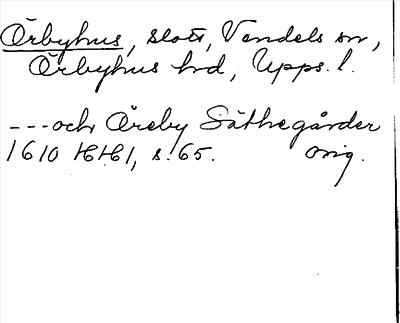 Örbyhus, slott, Vendels sn,
Örbyhus hrd, Upps. l.
--- och Öreby Säthegårder
1610 HH 61, s. 65. orig.